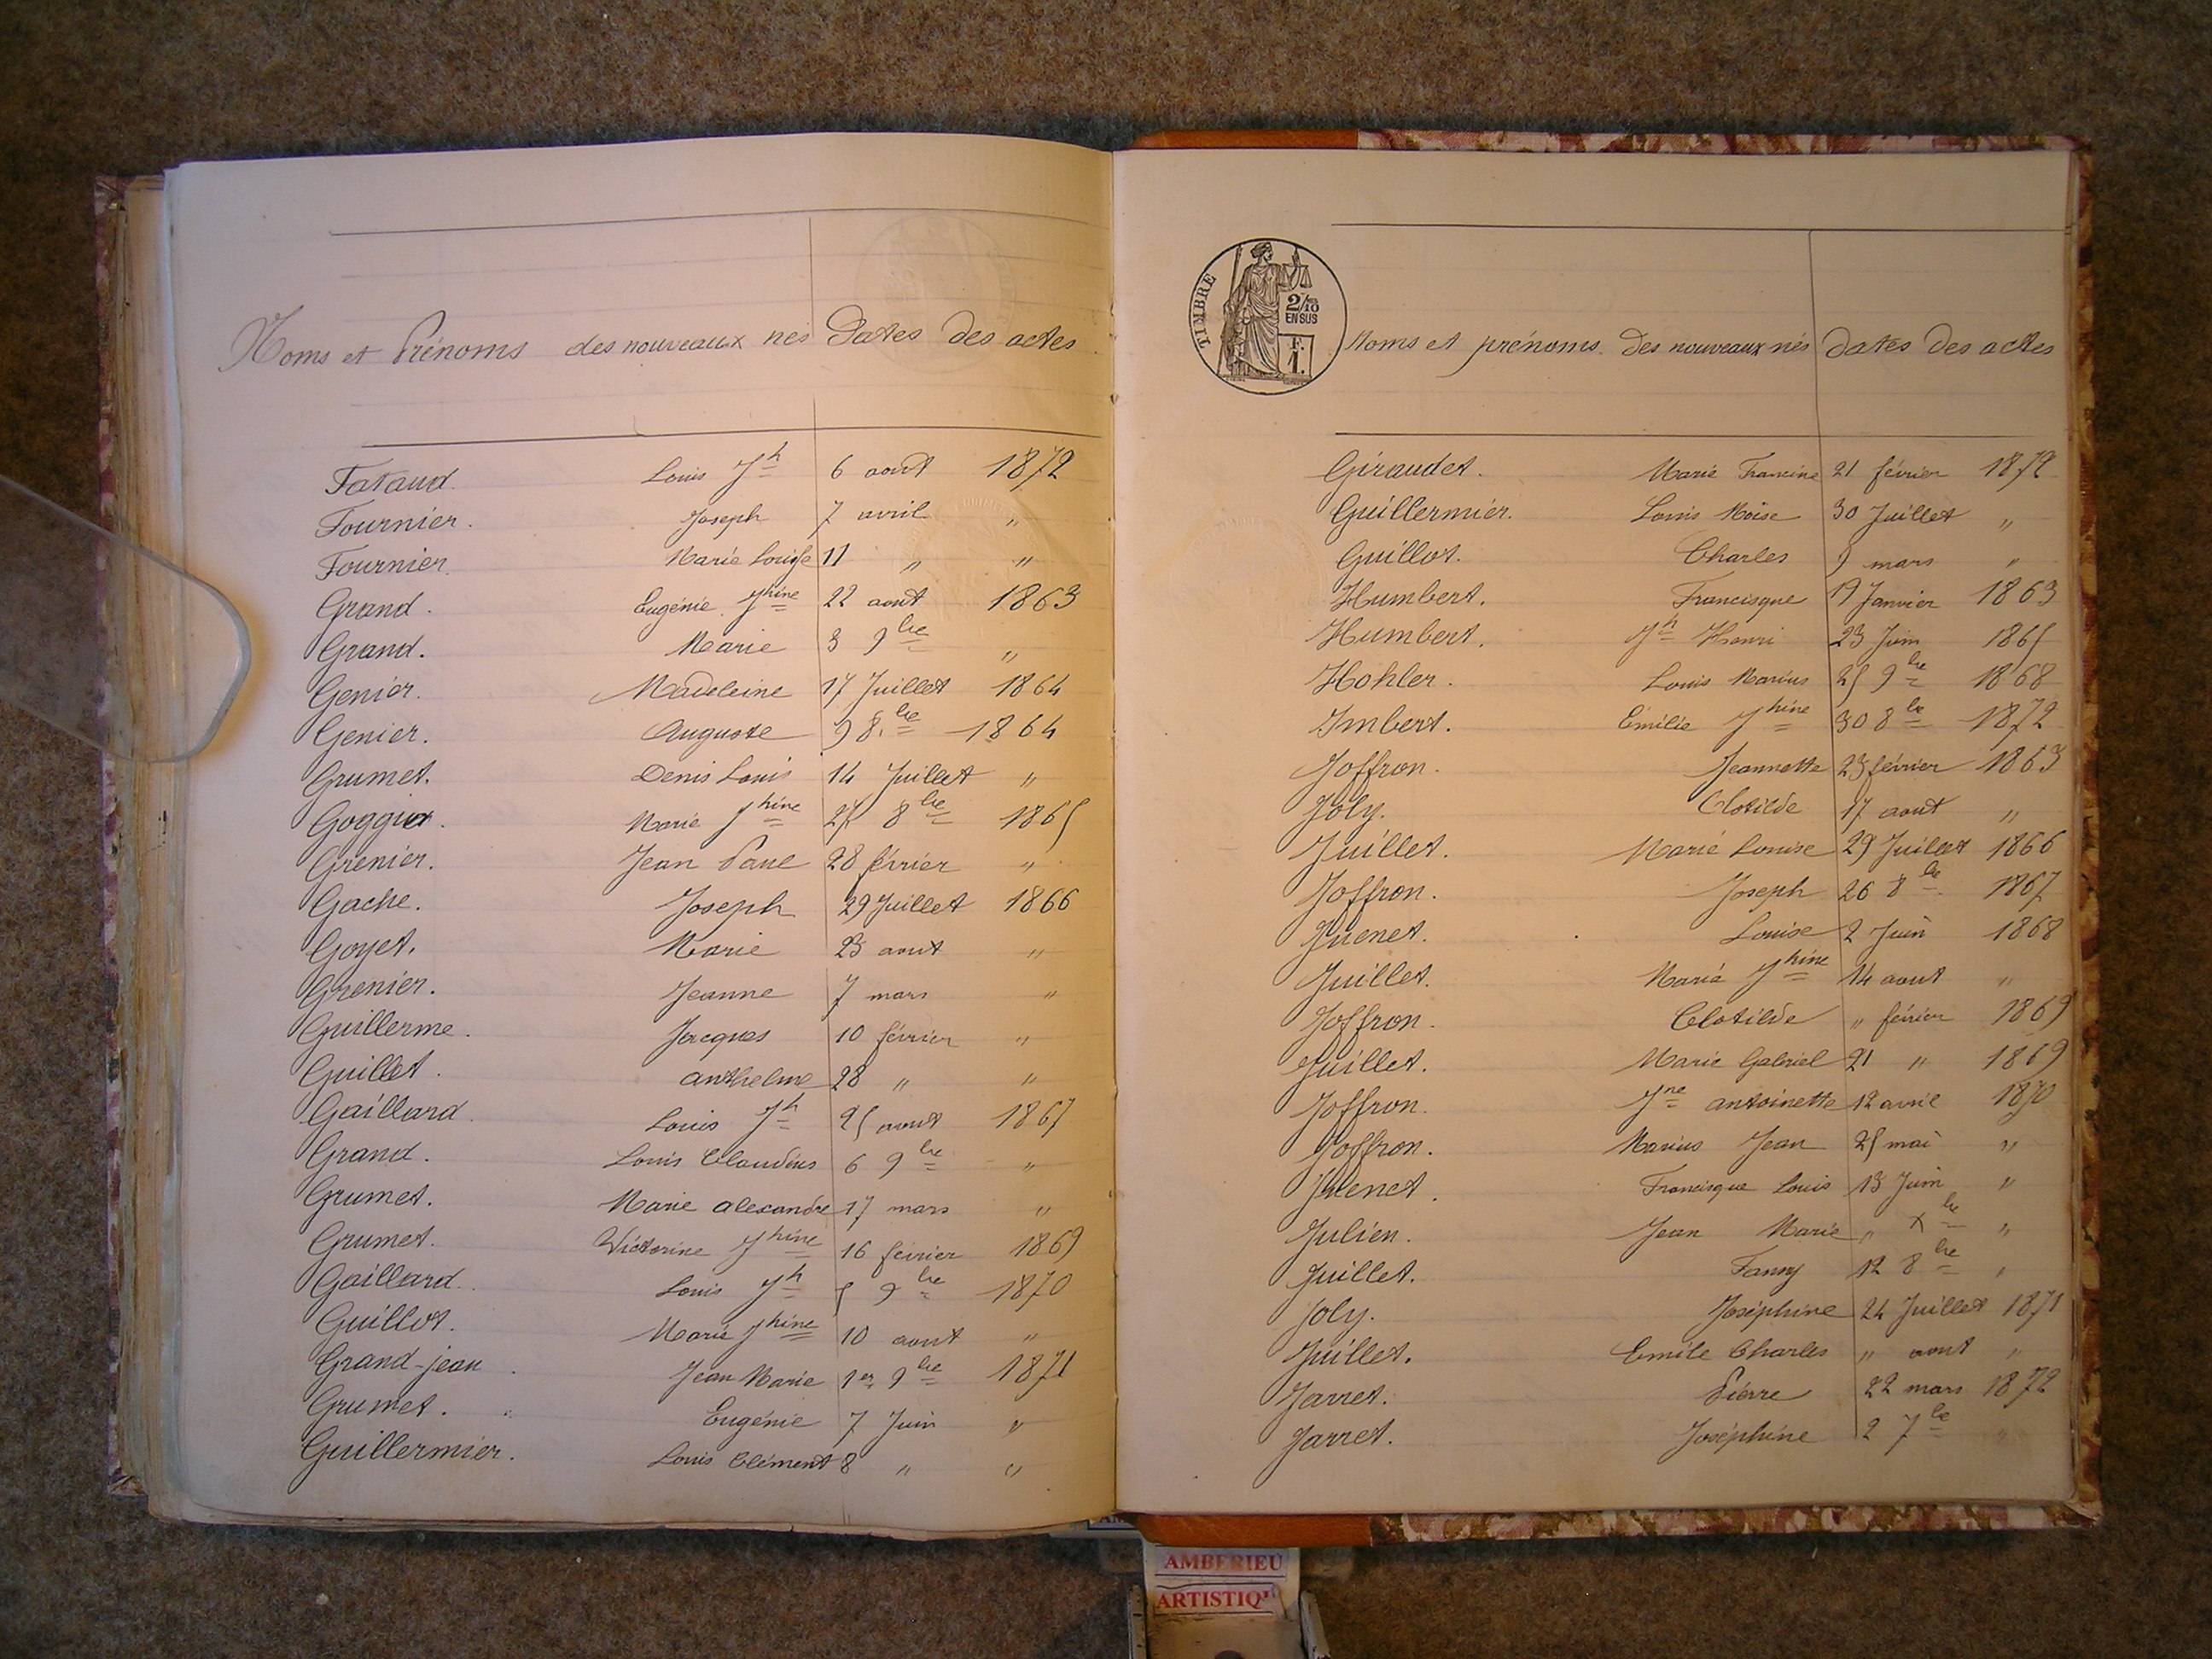 Noms et Prénoms des nouveaux nés Dates des actes
Fataud. Louis Jh 6 aout 1872
Fournier. Joseph 7 avril "
Fournier. Marie Louise 11 " "
Grand. Eugénie Jhine 22 aout 1863
Grand. Marie 3 9bre "
Genier. Madeleine 17 Juillet 1864
Genier. Auguste 9 8bre 1864
Grumet. Denis Louis 14 Juillet "
Marie Jhine 8bre 1865
Grenier. Jean Paul 28 février "
Gache. Joseph 29 Juillet 1866
Goyet. Marie 23 aout "
Grenier. Jeanne 7 mars "
Guillerme. Jacques 10 février "
Guillet. anthelme 28 " "
Gaillard Louis Jh 25 aout 1867
Grand. Louis Claudius 6 9bre "
Grumet. Marie alexandre 17 mars "
Grumet. Victorine Jhine 16 février 1869
Gaillard. Louis Jh 5 9bre 1870
Guillot. Marie Jhine 10 aout "
Grand-jean. Jean Marie 1er 9bre 1871
Grumet. Eugénie 7 Juin "
Guillermier. Louis Clément 8 " "
TIMBRE
2/10
EN SUS
F.
1.
Noms et prénoms des nouveaux nés dates des actes
Giraudet. Marie Francine 21 février 1872
Guillermier. Louis Moise 30 Juillet "
Guillot. Charles 9 mars "
Humbert. Francisque 19 Janvier 1863
Humbert. Jh Henri 23 Juin 1865
Hohler. Louis Marius 25 9bre 1868
Imbert. Emilie Jhine 30 8bre 1872
Joffron. Jeannette 23 février 1863
Joly. Clotilde 17 aout "
Juillet. Marie Louise 29 Juillet 1866
Joffron. Joseph 26 8bre 1867
Juenet. Louise 2 Juin 1868
Juillet. Maria Jhine 14 aout "
Joffron. Clotilde " février 1869
Juillet. Marie Gabriel 21 " 1869
Joffron. Jne antoinette 12 avril 1870
Joffron. Marius Jean 25 mai "
Juenet. Francisque Louis 13 Juin "
Julien. Jean Marie " Xbre "
Juillet. Fanny 12 8bre "
Joly. Joséphine 24 Juillet 1871
Juillet. Emile Charles " aout "
Jarret. Pierre 22 mars 1872
Jarret. Joséphine 2 7bre "
AMBERIEU
ARTISTIQ